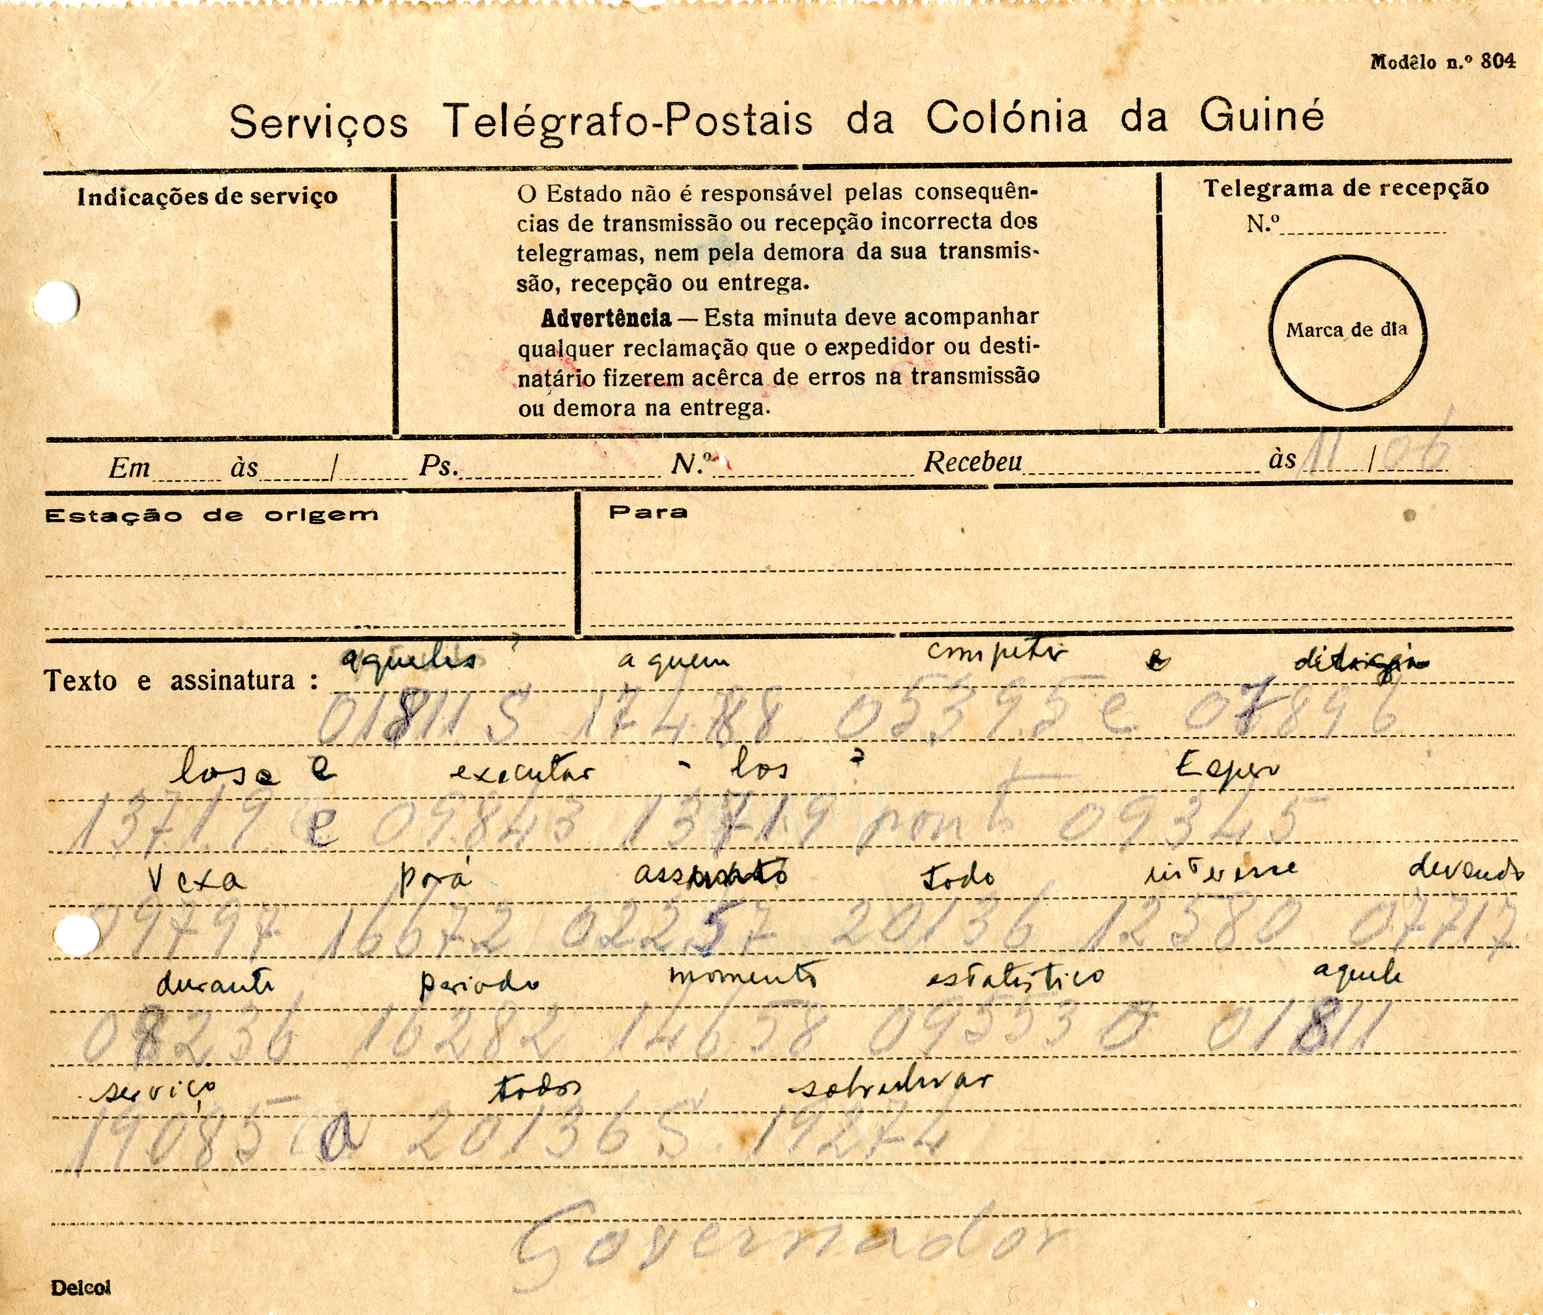 Modêlo n.º 804
Serviços Telégrafo-Postais da Colónia da Guiné
Indicações de serviço
O Estado não é responsável pelas consequên-
cias de transmissão ou recepção incorrecta dos
telegramas, nem pela demora da sua transmis-
são, recepção ou entrega.
Advertência — Esta minuta deve acompanhar
qualquer reclamação que o expedidor ou desti-
natário fizerem acêrca de erros na transmissão
ou demora na entrega.
Telegrama de recepção
N.º
Marca de dia
Em às / Ps. N.º Recebeu às 11 / 06
Estação de origem
Para
Texto e assinatura :
aqueles ? a quem competir e
01811 S 17488 05395 e 07896
los e executar - los ? Espero
13719 e 09843 13719 ponto 09345
Vexa porá assunto todo interesse devendo
09797 16672 02257 20136 12580 07717
durante periodo momento estatistico aquele
08236 16282 14658 09553 o 01811
serviço todos sobrelevar
19085 a 20136 S 19274
Governador
Delcol